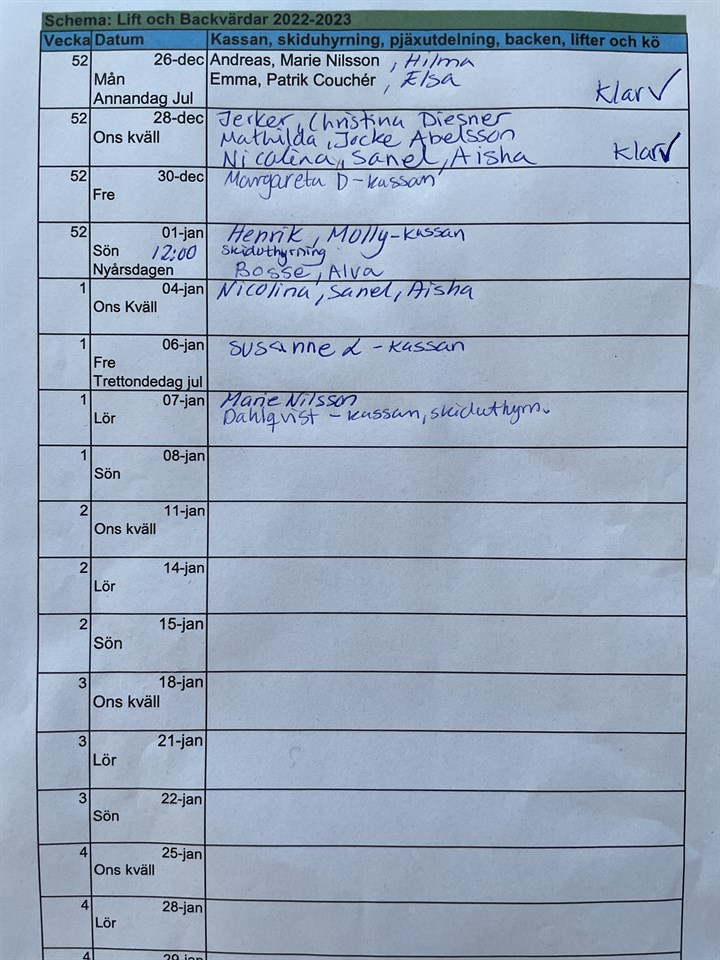 Schema: Lift och Backvärdar 2022-2023
Vecka Datum Kassan, skiduhyrning, pjäxutdelning, backen, lifter och kö
52 26-dec Andreas, Marie Nilsson , Hilma
Mån Emma, Patrik Couchér , Elsa
Annandag Jul Klar✓
52 28-dec Jerker, Christina Diesner
Ons kväll Mathilda, Jocke Abelsson
Nicolina, Sanel, Aisha Klar✓
52 30-dec Margareta D-kassan
Fre
52 01-jan Henrik, Molly-kassan
Sön 12:00 skiduthyrning
Nyårsdagen Bosse, Alva
1 04-jan Nicolina, Sanel, Aisha
Ons Kväll
1 06-jan Susanne L - kassan
Fre
Trettondedag jul
1 07-jan Marie Nilsson
Lör Dahlqvist - kassan, skiduthyrn.
1 08-jan
Sön
2 11-jan
Ons kväll
2 14-jan
Lör
2 15-jan
Sön
3 18-jan
Ons kväll
3 21-jan
Lör
3 22-jan
Sön
4 25-jan
Ons kväll
4 28-jan
Lör
4 29-jan